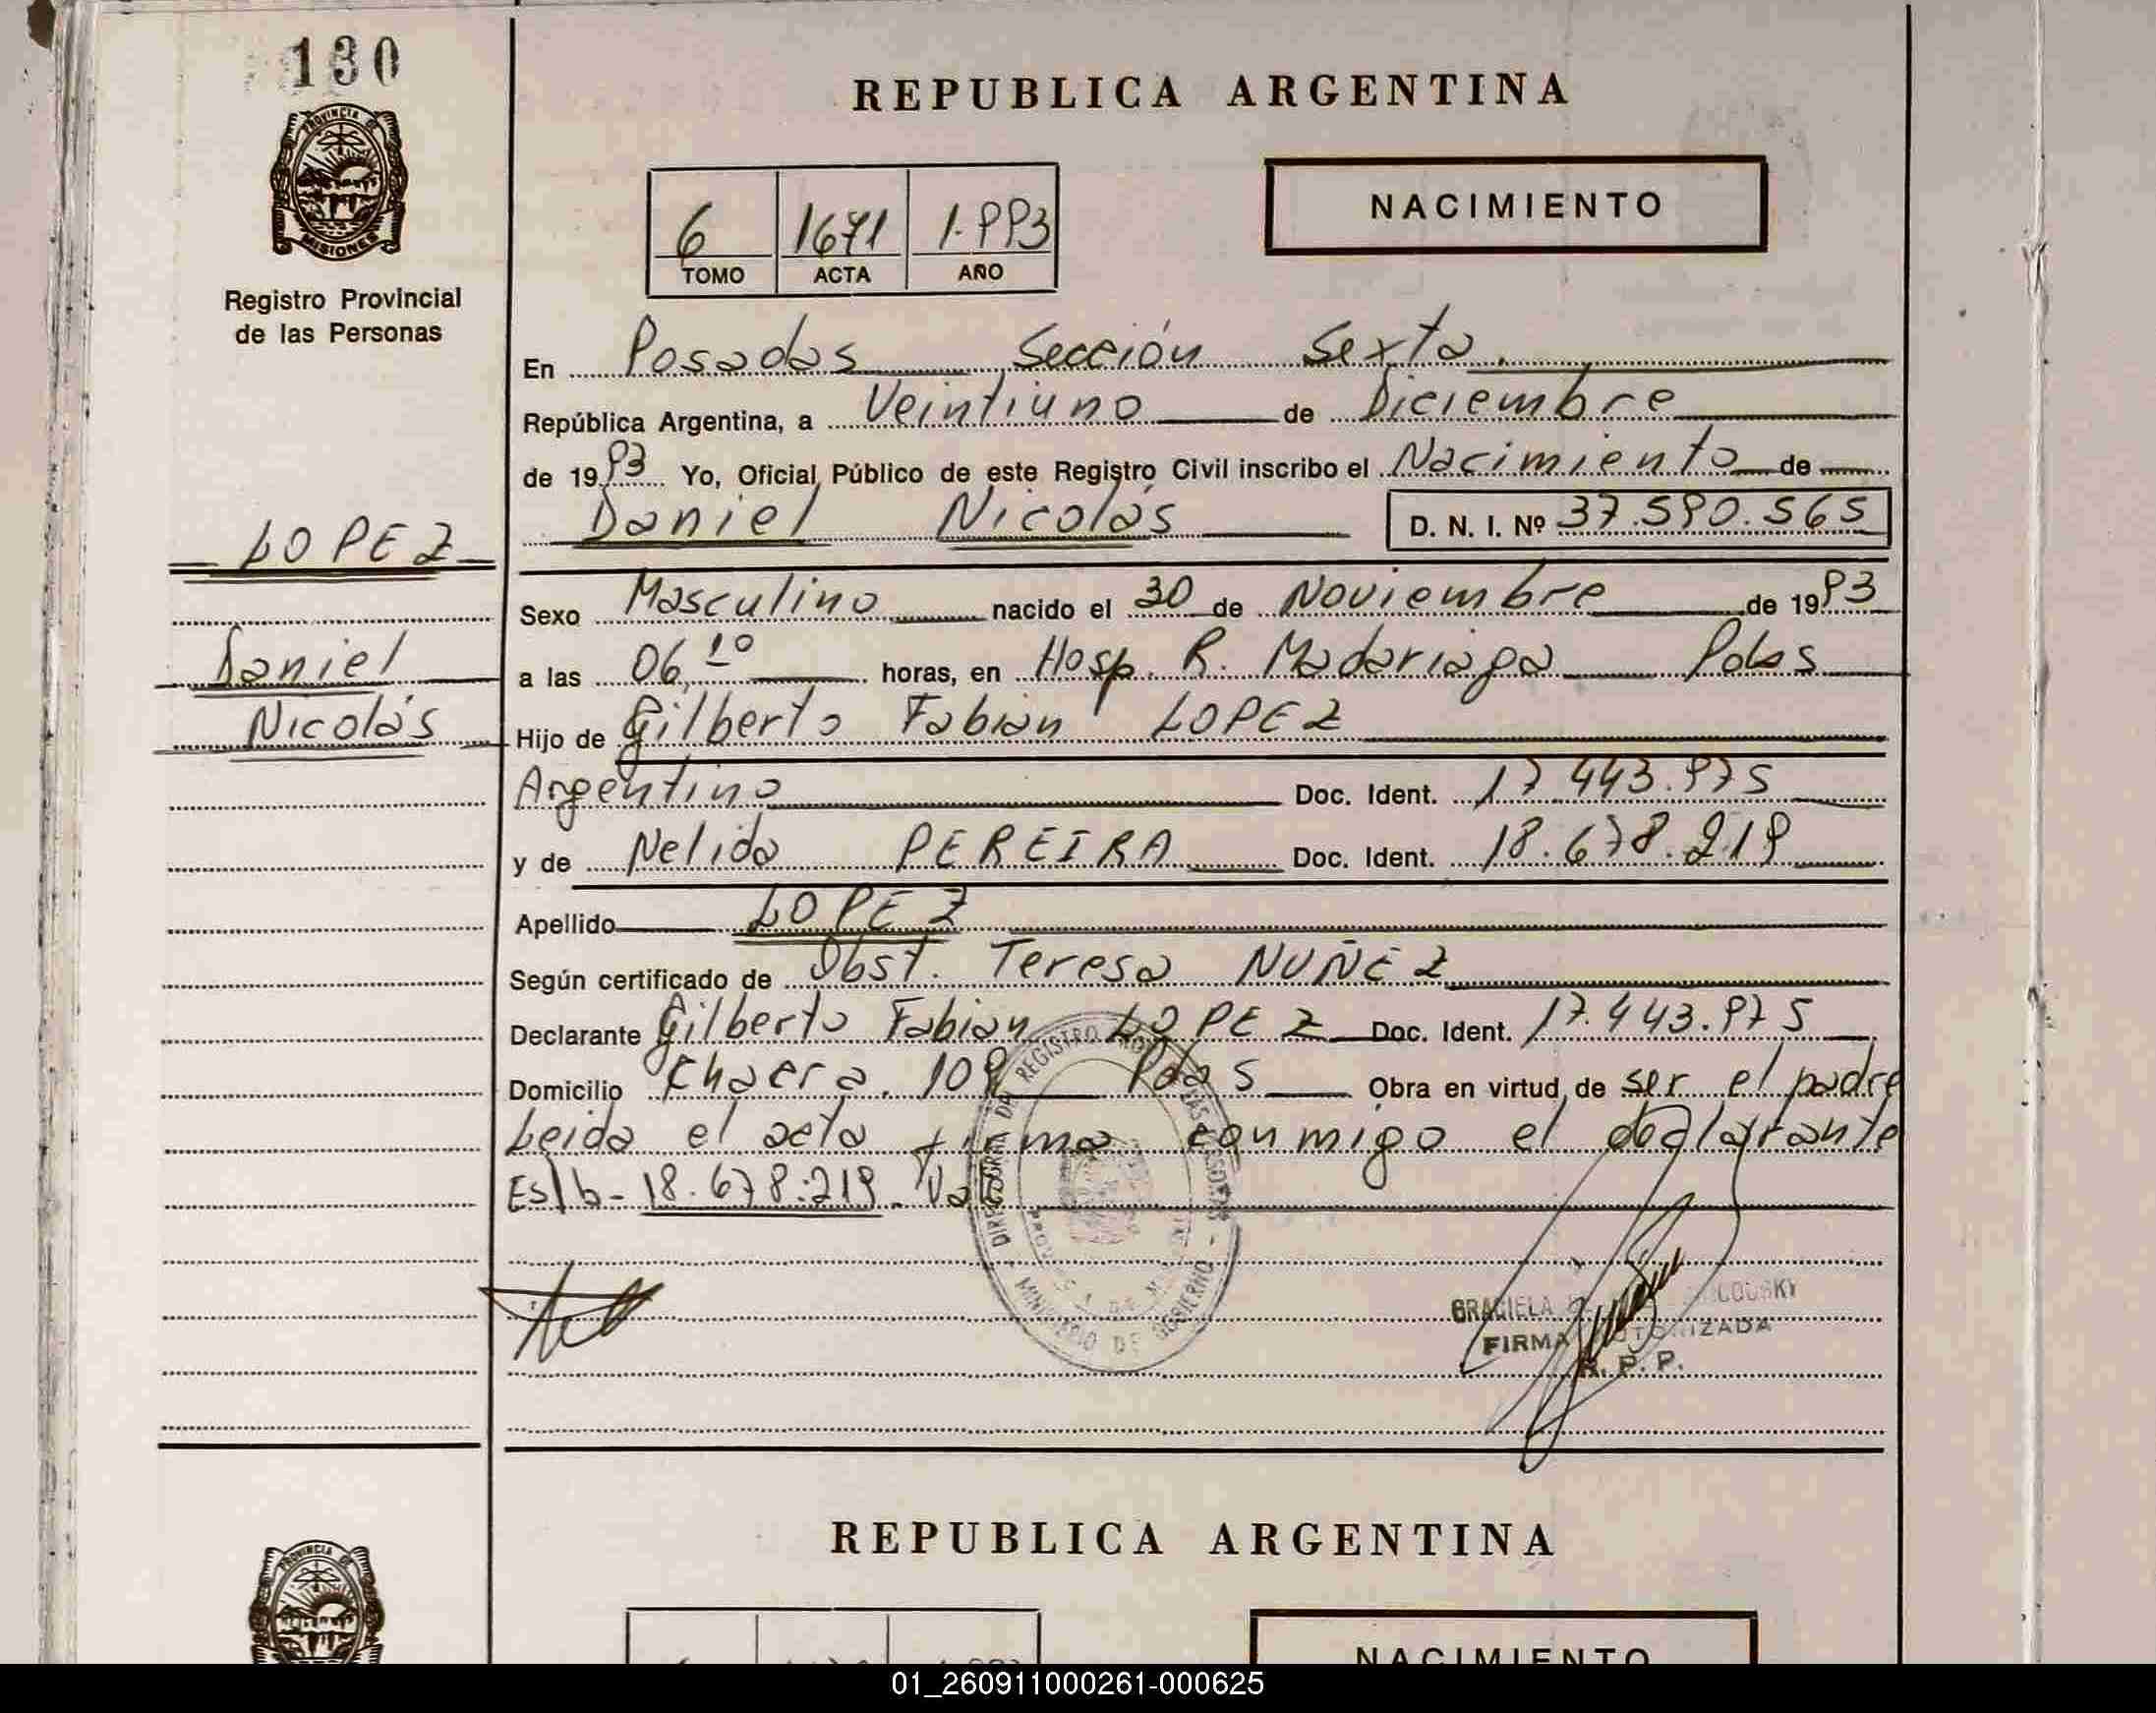 130
PROVINCIA DE
MISIONES
Registro Provincial
de las Personas
LOPEZ
Daniel
Nicolás
REPUBLICA ARGENTINA
6 1671 1.993
TOMO ACTA AÑO
NACIMIENTO
En Posadas Sección Sexta.
República Argentina, a Veintiuno de Diciembre
de 1993 Yo, Oficial Público de este Registro Civil inscribo el Nacimiento de
Daniel Nicolás D. N. I. Nº 37.590.565
Sexo Masculino nacido el 30 de Noviembre de 1993
a las 06,10 horas, en Hosp. R. Madariaga Pdas
Hijo de Gilberto Fabian LOPEZ
Argentino Doc. Ident. 17.443.975
y de Nelida PEREIRA Doc. Ident. 18.678.219
Apellido LOPEZ
Según certificado de Obst. Teresa NUÑEZ
Declarante Gilberto Fabian LOPEZ Doc. Ident. 17.443.975
Domicilio Chacra. 109 Pdas Obra en virtud de ser el padre
Leida el acta firma conmigo el declarante
Es/b- 18.678.219. Vale
REGISTRO
MINISTERIO DE GOBIERNO
GRACIELA
FIRMA AUTORIZADA
R. P. P.
REPUBLICA ARGENTINA
PROVINCIA DE
NACIMIENTO
01_260911000261-000625